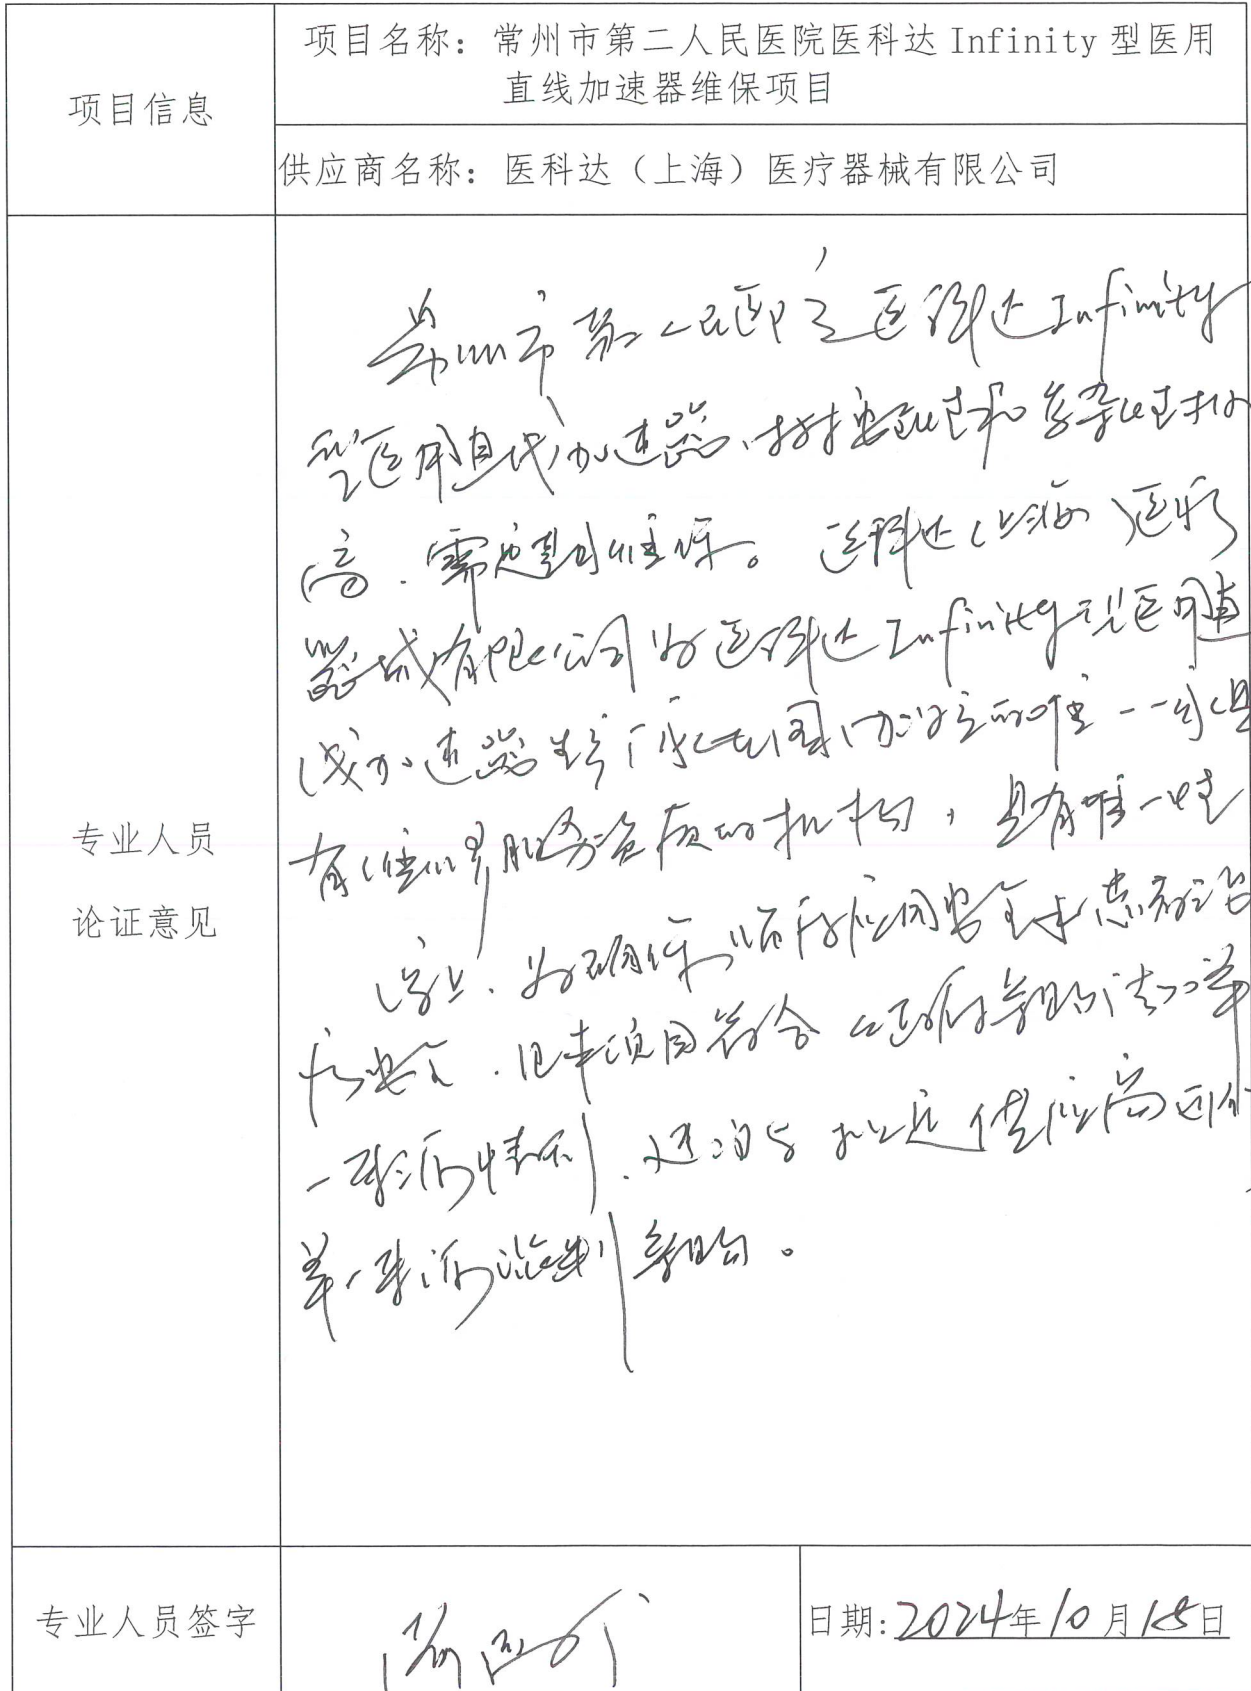 项目信息
项目名称：常州市第二人民医院医科达 Infinity 型医用
直线加速器维保项目
供应商名称：医科达（上海）医疗器械有限公司
专业人员
论证意见
常州市第二人民医院医科达Infinity
型医用直线加速器，技术密集性和复杂性极
高，需定期维保。医科达（上海）医疗
器械有限公司为医科达Infinity型医用直
线加速器生产厂家在国内设立的唯一一家具
有维修服务资质的机构，具有唯一性
综上，为确保临床应用安全和患者治
疗安全，且本项目符合政府采购法的单
一来源情形，建议与拟定供应商进行
单一来源谈判采购。
专业人员签字
日期：2024年10月18日